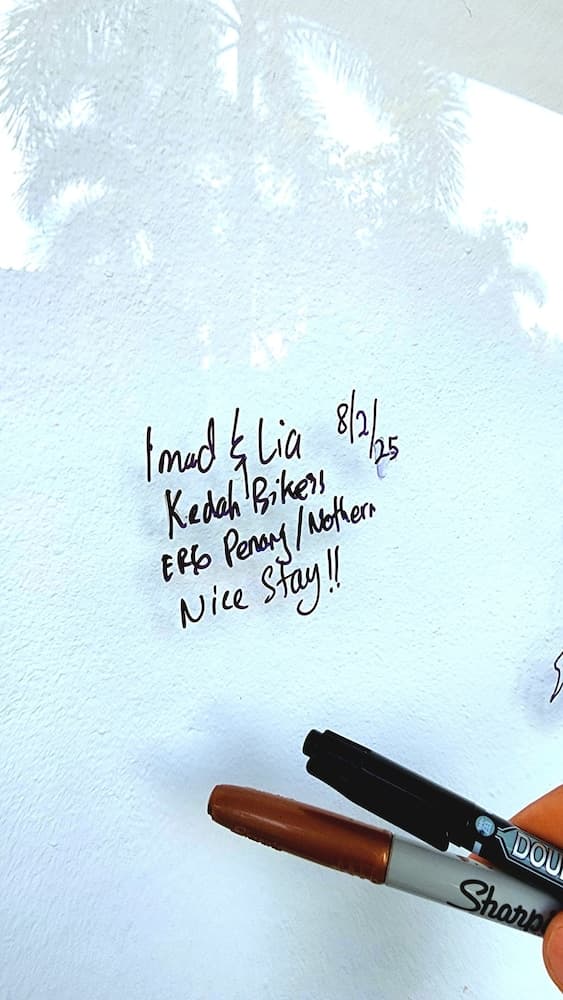 Imad & Lia 8/2/25
Kedah Bikers
ER6 Penang/Nothern
Nice Stay!!
DOU
Sharpi